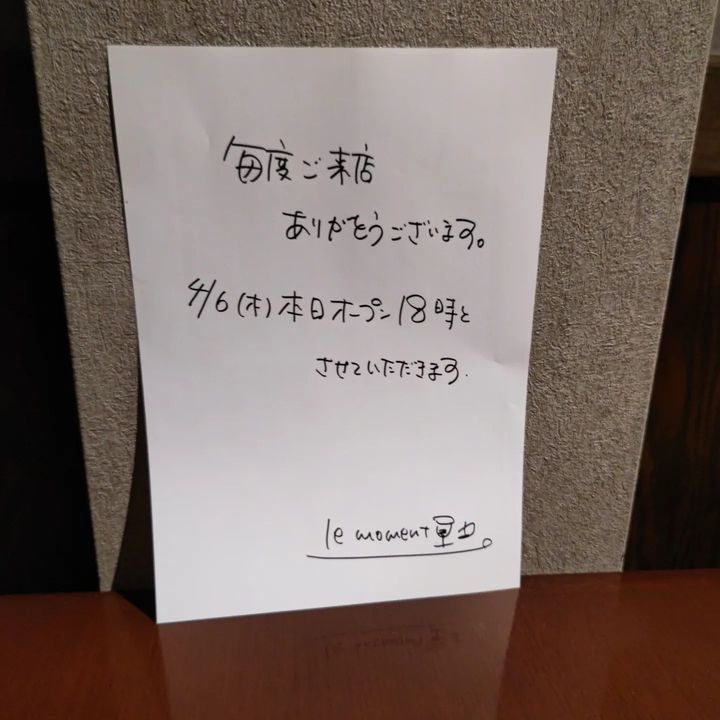 毎度ご来店
ありがとうございます。
4/6(木)本日オープン18時と
させていただきます.
le moment